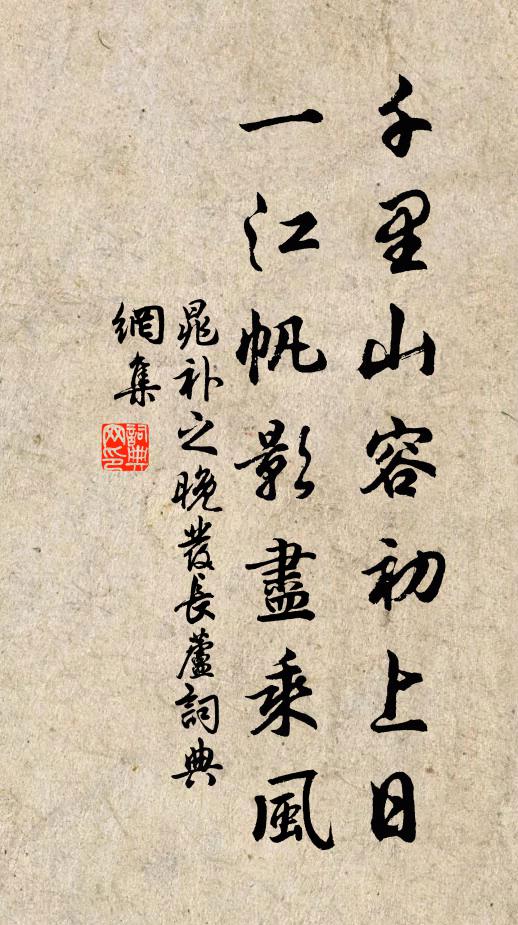 千里山容初上日
一江帆影盡乘風
晁補之晚發長蘆詞典
網集
詞典
网印